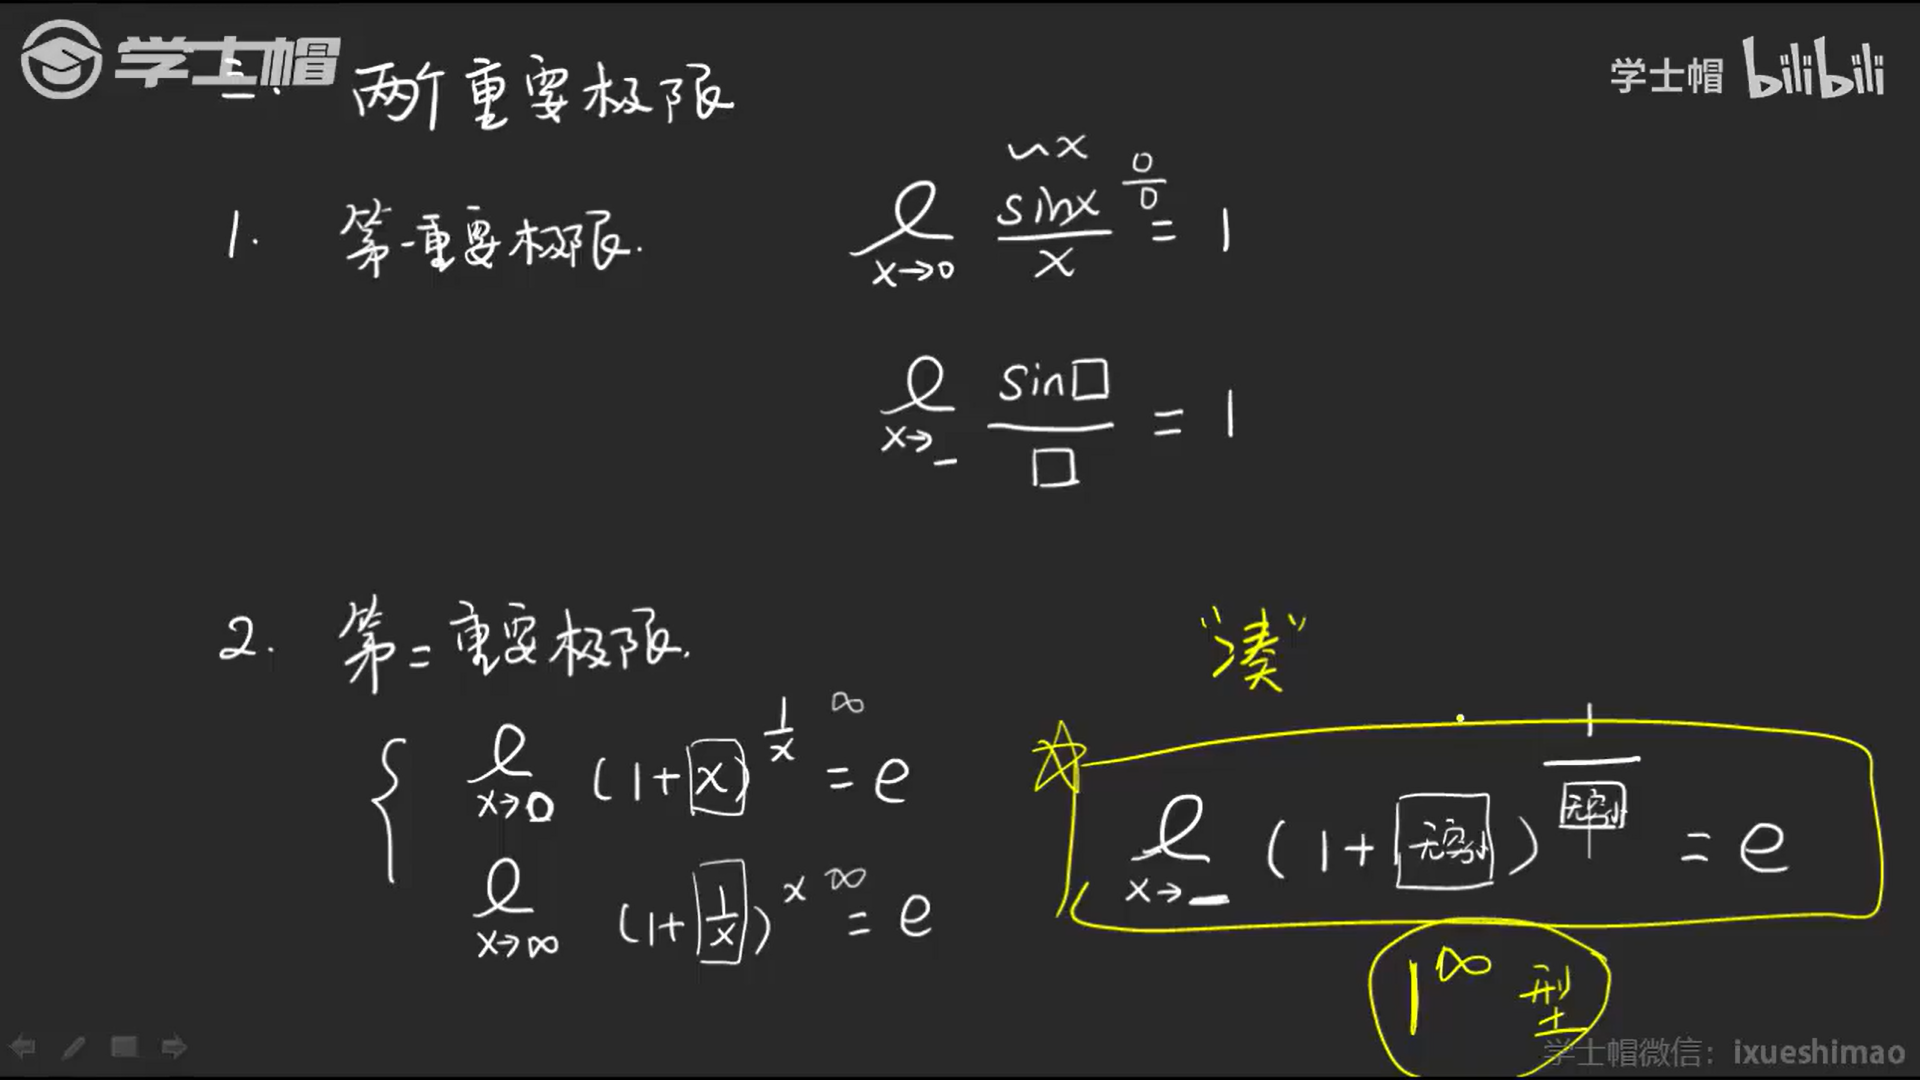 学士帽
学士帽 bilibili
三、两个重要极限
1. 第一重要极限.
~x
lim x→0 sinx/x 0/0 = 1
lim x→_ sin□/□ = 1
2. 第二重要极限.
“凑”
lim x→0 (1+x)^(1/x) ∞ = e
lim x→_ (1+无穷小)^(1/无穷小) = e
lim x→∞ (1+1/x)^x ∞ = e
1^∞ 型
学士帽微信：ixueshimao